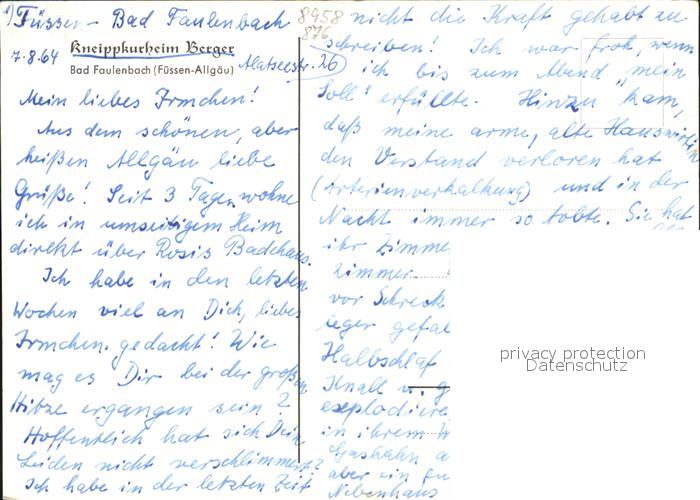 1) Füssen - Bad Faulenbach
8958
876
7.8.64 Kneippkurheim Berger
Bad Faulenbach (Füssen-Allgäu) Alatseestr. 26
Mein liebes Irmchen!
Aus dem schönen, aber
heißen Allgäu liebe
Grüße! Seit 3 Tagen wohne
ich in umseitigem Heim
direkt über Rosis Badehaus.
Ich habe in den letzten
Wochen viel an Dich, liebes
Irmchen, gedacht! Wie
mag es Dir bei der großen
Hitze ergangen sein?
Hoffentlich hat sich Dein
Leiden nicht verschlimmert?
Ich habe in der letzten Zeit
nicht die Kraft gehabt zu
schreiben! Ich war froh, wenn
ich bis zum Abend "mein
Soll" erfüllte. Hinzu kam,
daß meine arme, alte Hauswirtin
den Verstand verloren hat
(Arterienverkalkung) und in der
Nacht immer so tobte. Sie hat
ihr Zimme
Zimmer
vor Schreck
leger gefal
Halbschlaf
Knall u. g
explodiere
in ihrem W
Gashahn a
aber ein
Nebenhaus
privacy protection
Datenschutz